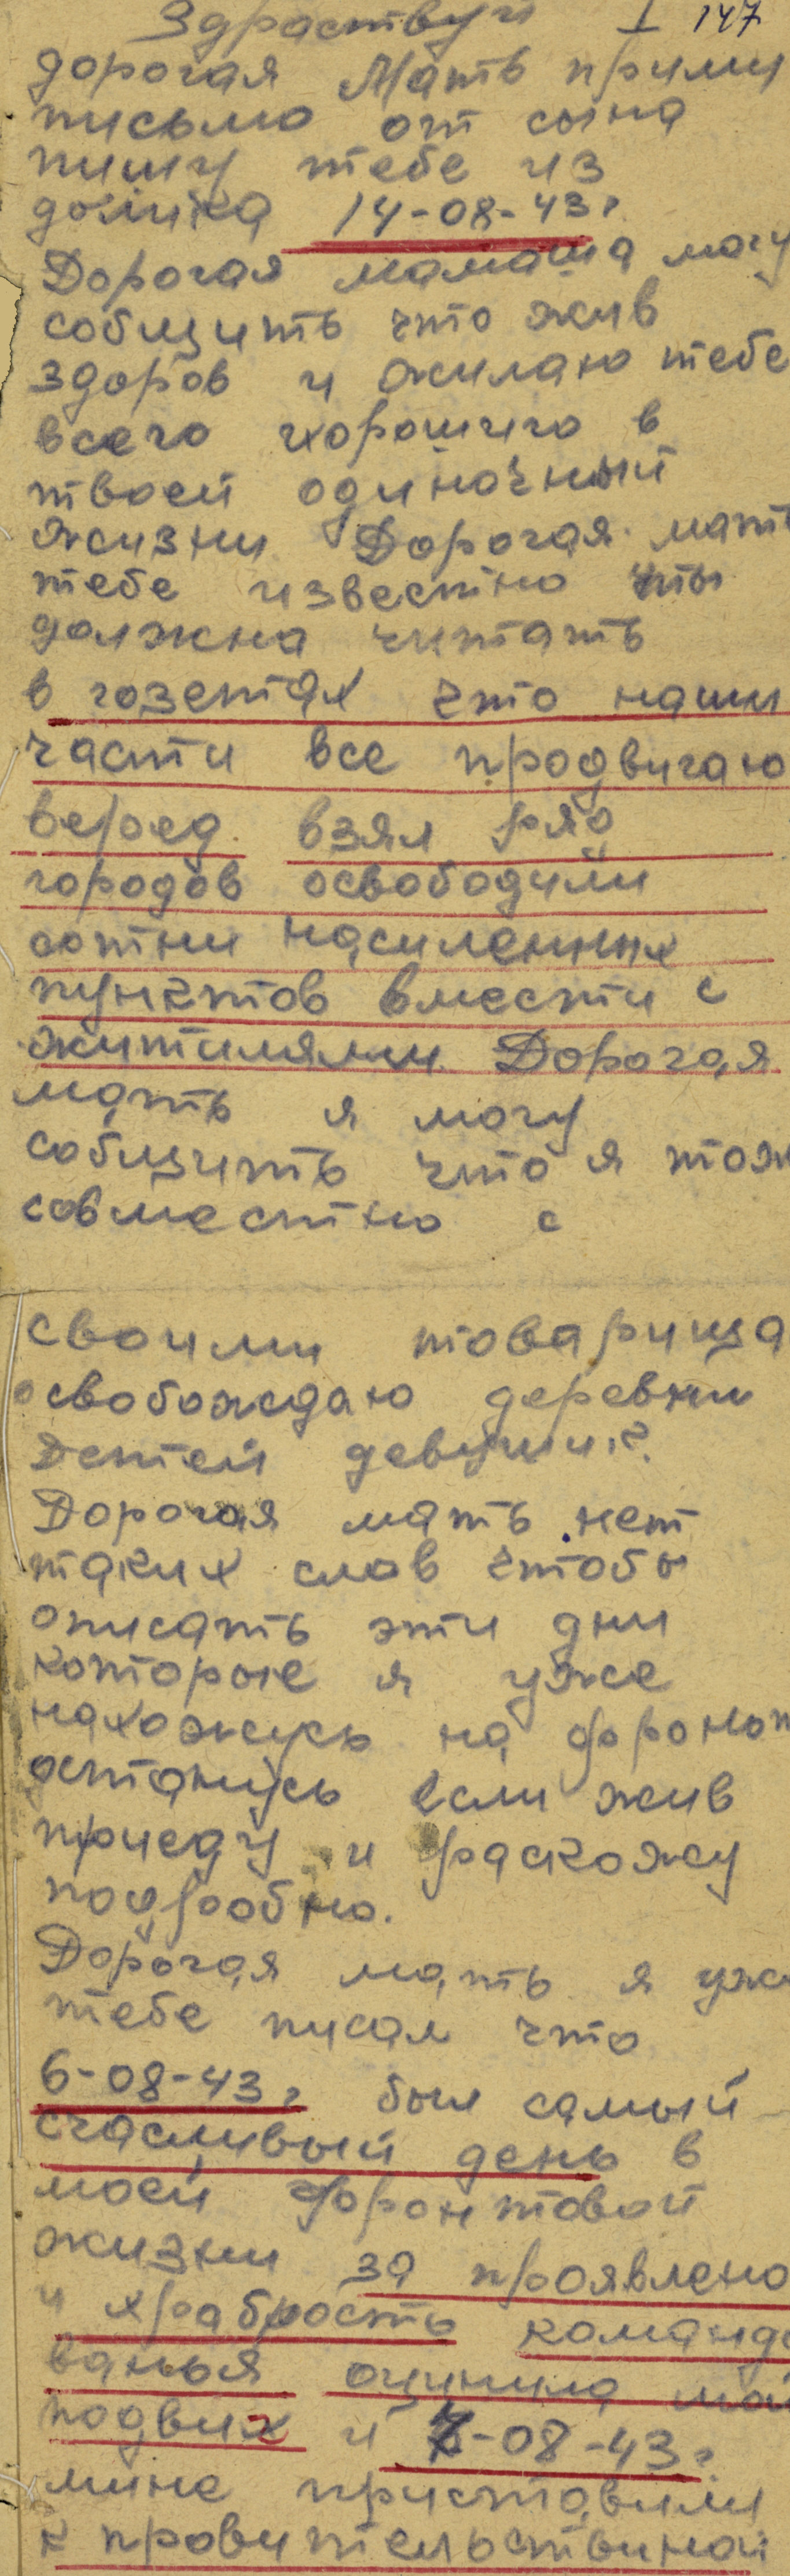 Здраствуй I 147
дорогая Мать прими
письмо от сына
пишу тебе из
домика 14-08-43г
Дорогая мамаша магу
собщить что жив
здоров и жилаю тебе
всего хорошиго в
твоей одиночный
жизни Дорогая мать
тебе известно ты
должна читать
в гозетах что наши
части все продвигаю
веред взял ряд
городов освободили
сотни насиленных
пунктов вмести с
житилями Дорогая
мать я могу
собщить что я тож
совместно с
своими товарища
освобождаю деревни
детей девушик.
Дорогая мать нет
таких слов чтобы
описать эти дни
которые я уже
нахожусь на фронт
астанусь если жив
приеду и раскожу
подробно.
Дорогая мать я уж
тебе писал что
6-08-43г был самый
счасливый день в
моей фронтовой
жизни за проявлено
и храбрость команд
ванья оцинила мой
подвих и 7-08-43г
мине приставили
к правительствиной